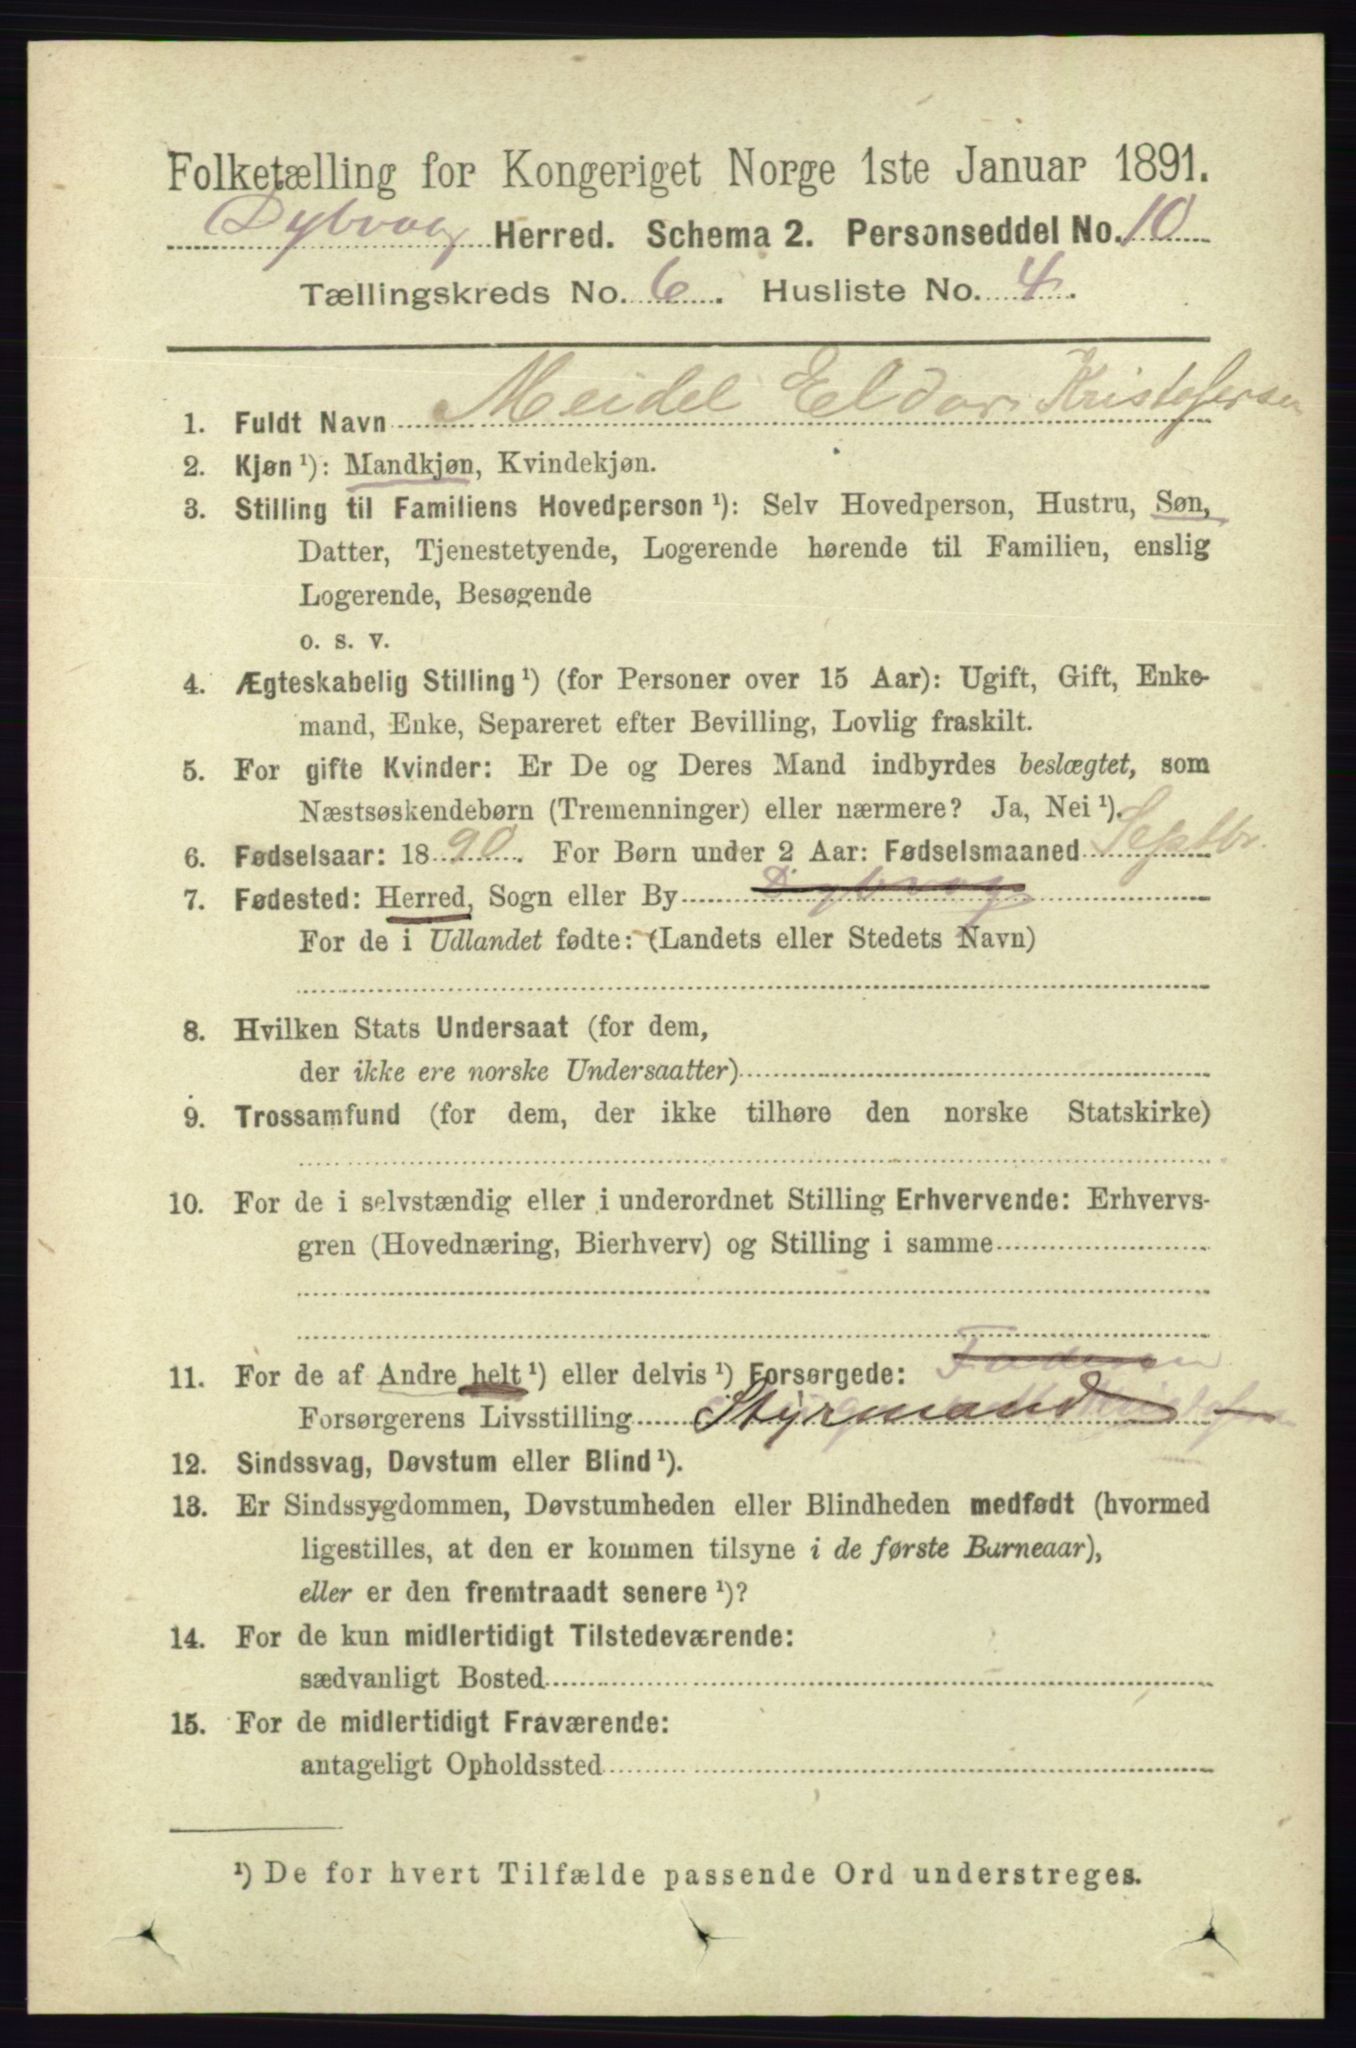 Folketælling for Kongeriget Norge 1ste Januar 1891.
Dybvaag Herred. Schema 2. Personseddel No. 10
Tællingskreds No. 6. Husliste No. 4.
1. Fuldt Navn Meidel Eldor Kristofersen
2. Kjøn ¹): Mandkjøn, Kvindekjøn.
3. Stilling til Familiens Hovedperson ¹): Selv Hovedperson, Hustru, Søn,
Datter, Tjenestetyende, Logerende hørende til Familien, enslig
Logerende, Besøgende
o. s. v.
4. Ægteskabelig Stilling ¹) (for Personer over 15 Aar): Ugift, Gift, Enke-
mand, Enke, Separeret efter Bevilling, Lovlig fraskilt.
5. For gifte Kvinder: Er De og Deres Mand indbyrdes beslægtet, som
Næstsøskendebørn (Tremenninger) eller nærmere? Ja, Nei ¹).
6. Fødselsaar: 1890. For Børn under 2 Aar: Fødselsmaaned Septbr.
7. Fødested: Herred, Sogn eller By Dybvag
For de i Udlandet fødte: (Landets eller Stedets Navn)
8. Hvilken Stats Undersaat (for dem,
der ikke ere norske Undersaatter)
9. Trossamfund (for dem, der ikke tilhøre den norske Statskirke)
10. For de i selvstændig eller i underordnet Stilling Erhvervende: Erhvervs-
gren (Hovednæring, Bierhverv) og Stilling i samme
11. For de af Andre helt ¹) eller delvis ¹) Forsørgede:
Forsørgerens Livsstilling Styrmand
12. Sindssvag, Døvstum eller Blind ¹).
13. Er Sindssygdommen, Døvstumheden eller Blindheden medfødt (hvormed
ligestilles, at den er kommen tilsyne i de første Barneaar),
eller er den fremtraadt senere ¹)?
14. For de kun midlertidigt Tilstedeværende:
sædvanligt Bosted
15. For de midlertidigt Fraværende:
antageligt Opholdssted
¹) De for hvert Tilfælde passende Ord understreges.